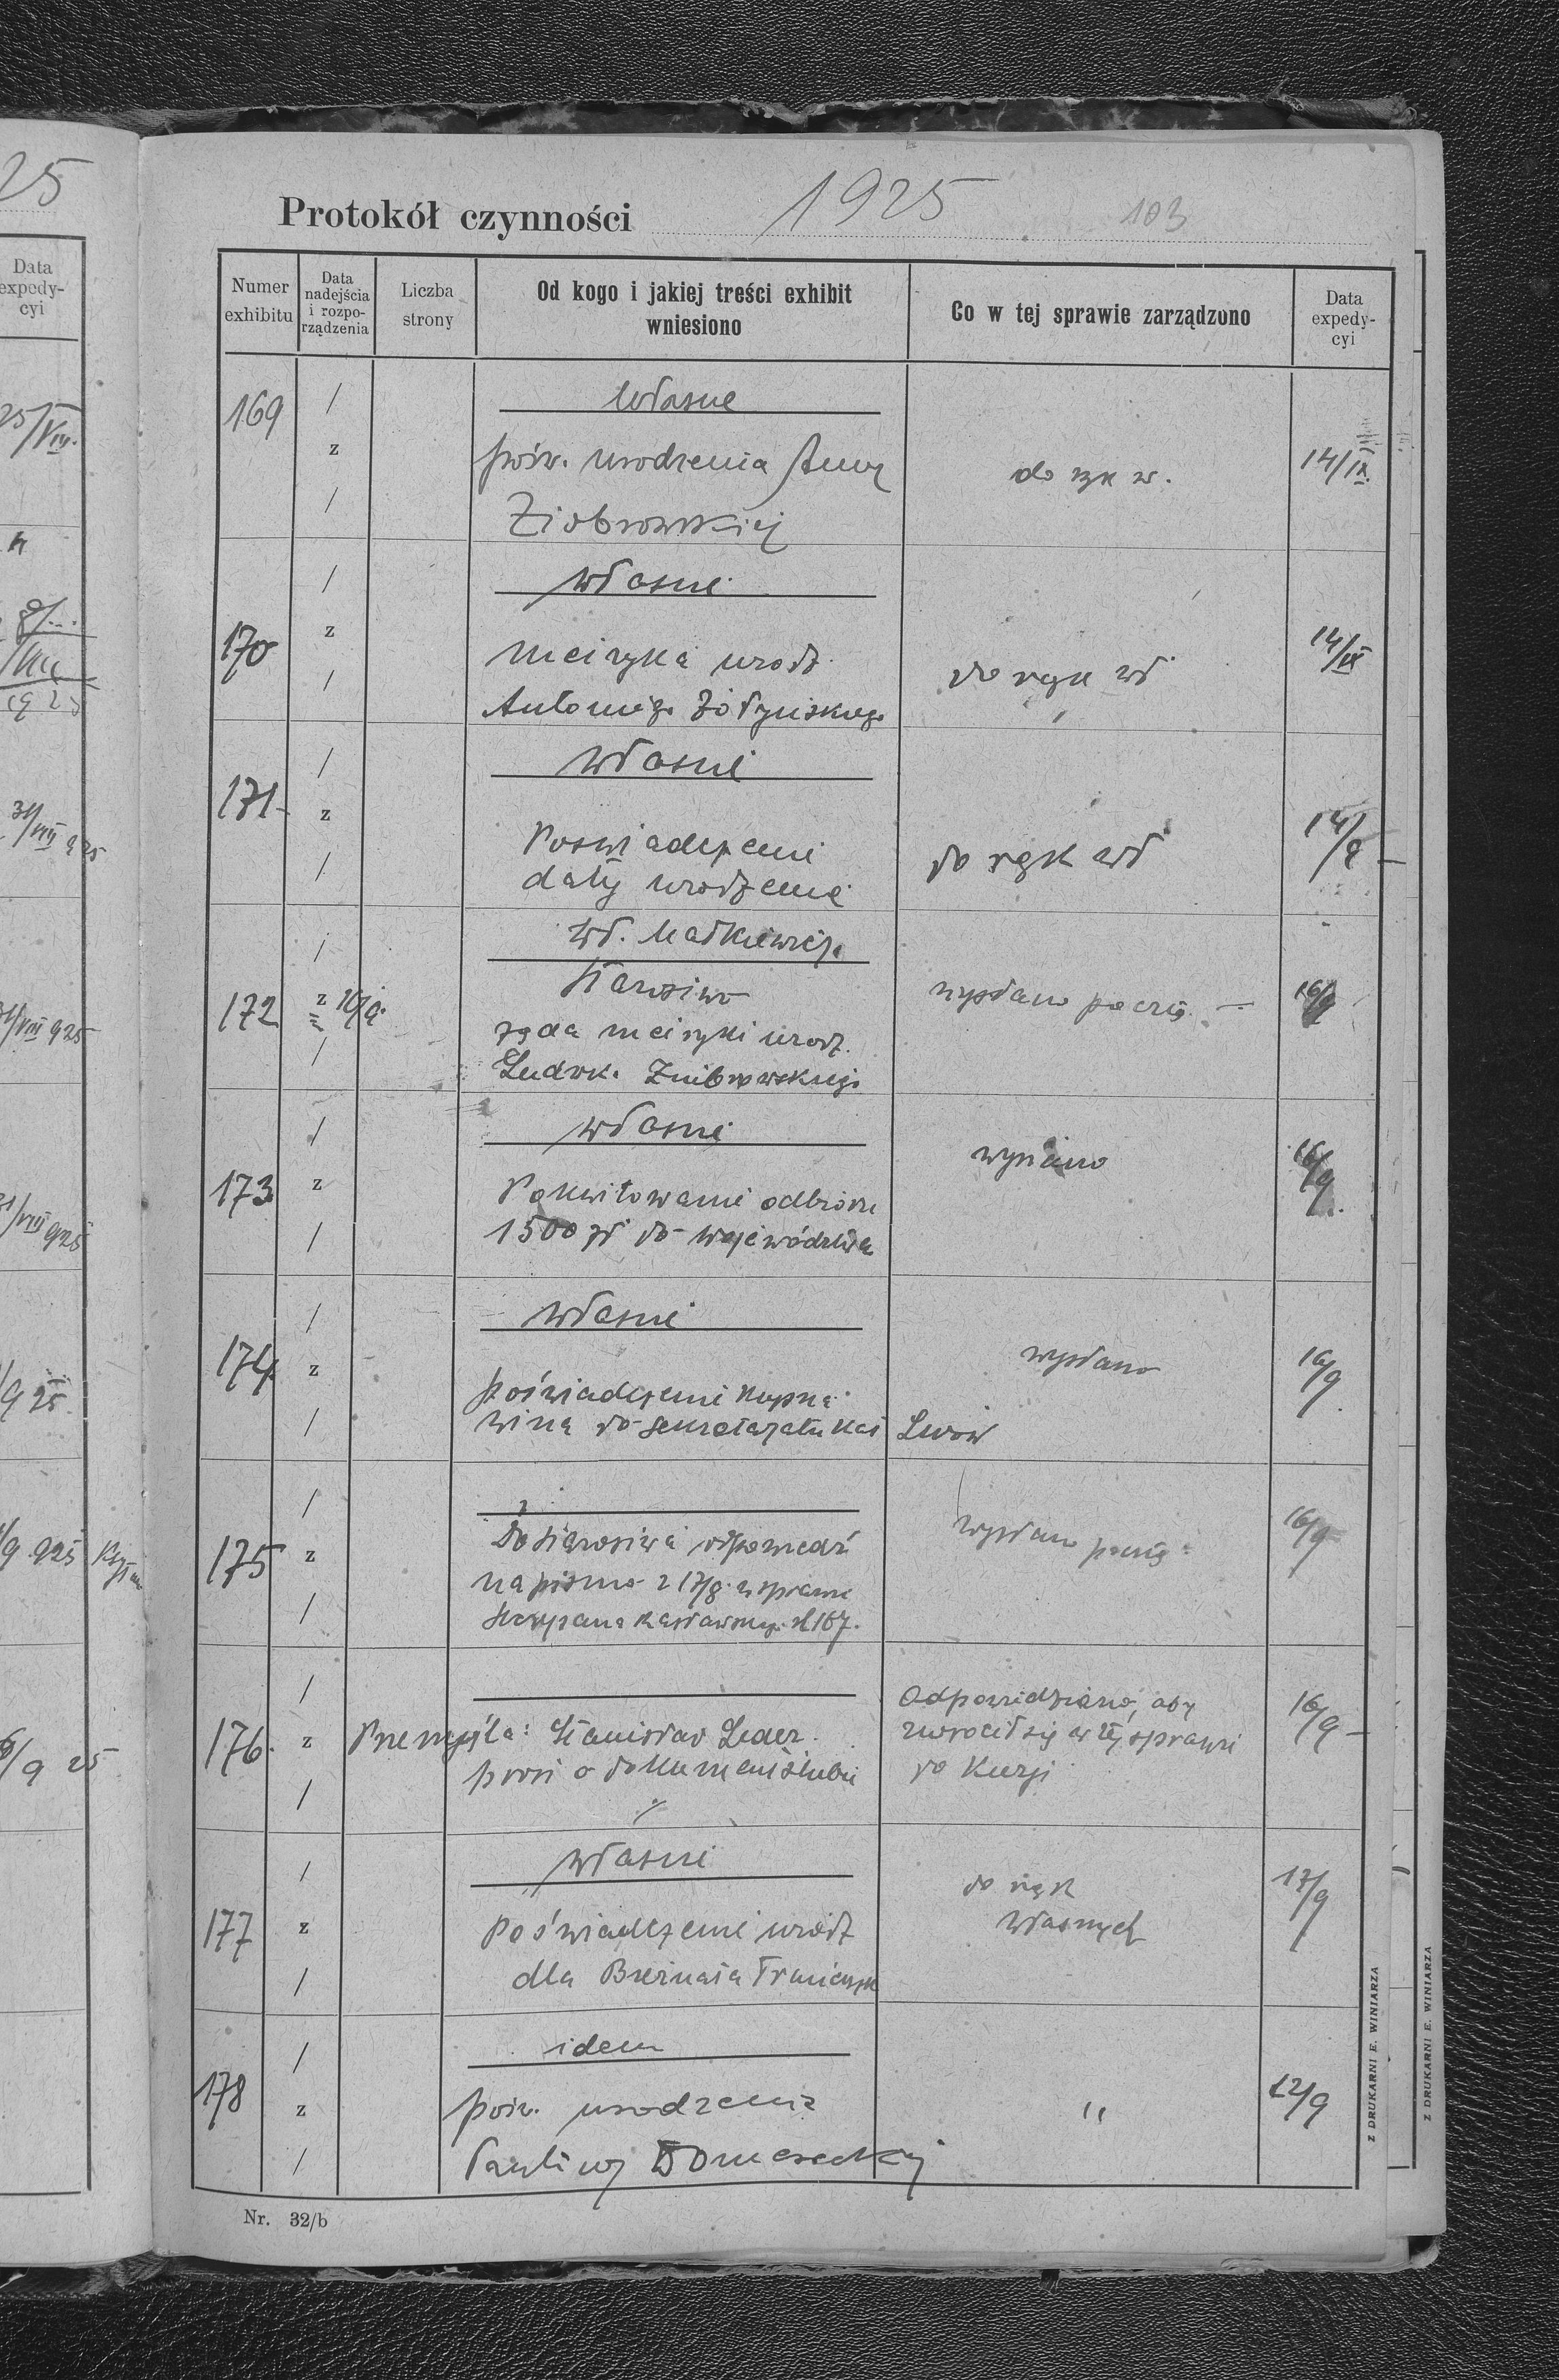 Protokół czynności 1925 103
Numer exhibitu
Data nadejścia i rozporządzenia
Liczba strony
Od kogo i jakiej treści exhibit wniesiono
Co w tej sprawie zarządzono
Data expedycyi
169 / z /
własne
pośw. urodzenia Anny
Ziobrowskiej
do rąk w.
14/IX.
170 / z /
własne
metryka urodz.
Antoniego
do rąk wł
14/IX
171 / z /
własne
Poświadczenie
daty urodzenia
wł.
do rąk wł
14/9
172 / z 16/9 /
Starostwo
żąda metryki urodz.
Ludwk.
wysłano pocztą. —
16/9
173 / z /
własne
Pokwitowanie odbioru
1500 zł do województwa
wysłano
16/9
174 / z /
własne
poświadczenie kupna
wina do sekretarjatu kat Lwów
wysłano
16/9
175 / z /
Do starostwa odpowiedź
na pismo z 17/8 w sprawie
Szczepana
wysłano pocztą
16/9
176. / z /
Przemyśla: Stanisław Leder
prosi o dokument ślubu
Odpowiedziano, aby
zwrócił się w tej sprawie
do Kurji
16/9 —
177 / z /
własne
Poświadczenie urodz
dla Franciszk
do rąk
własnych
17/9
178 / z /
idem
pośw. urodzenia
Pauliny
"
12/9
Nr. 32/b
Z DRUKARNI E. WINIARZA
Z DRUKARNI E. WINIARZA
25
Data expedycyi
25/VIII.
31/VIII 925
31/VIII 925
31/VIII 925
9 25.
/9 925
/9 25